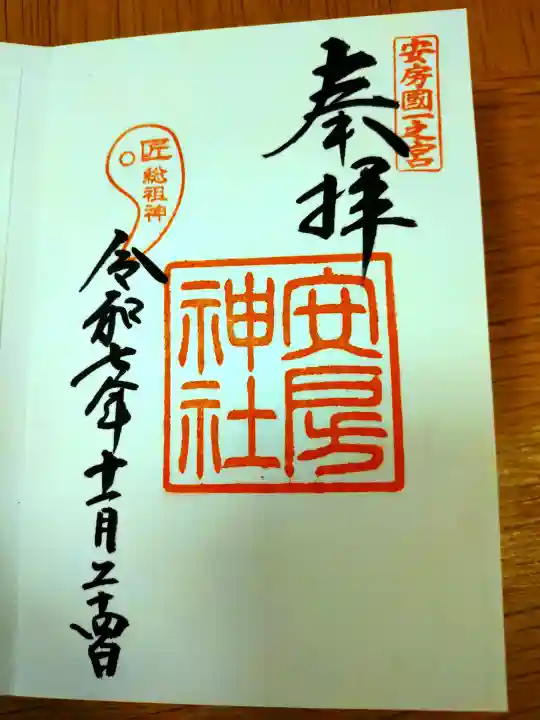 安房國一之宮
奉拝
安房
神社
匠
総祖神
令和七年十一月二十四日